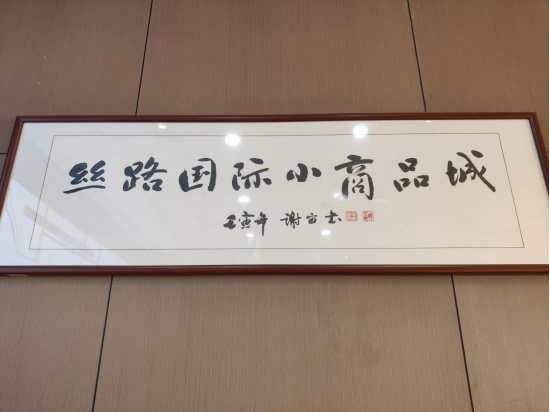 丝路国际小商品城
壬寅年 谢宙书